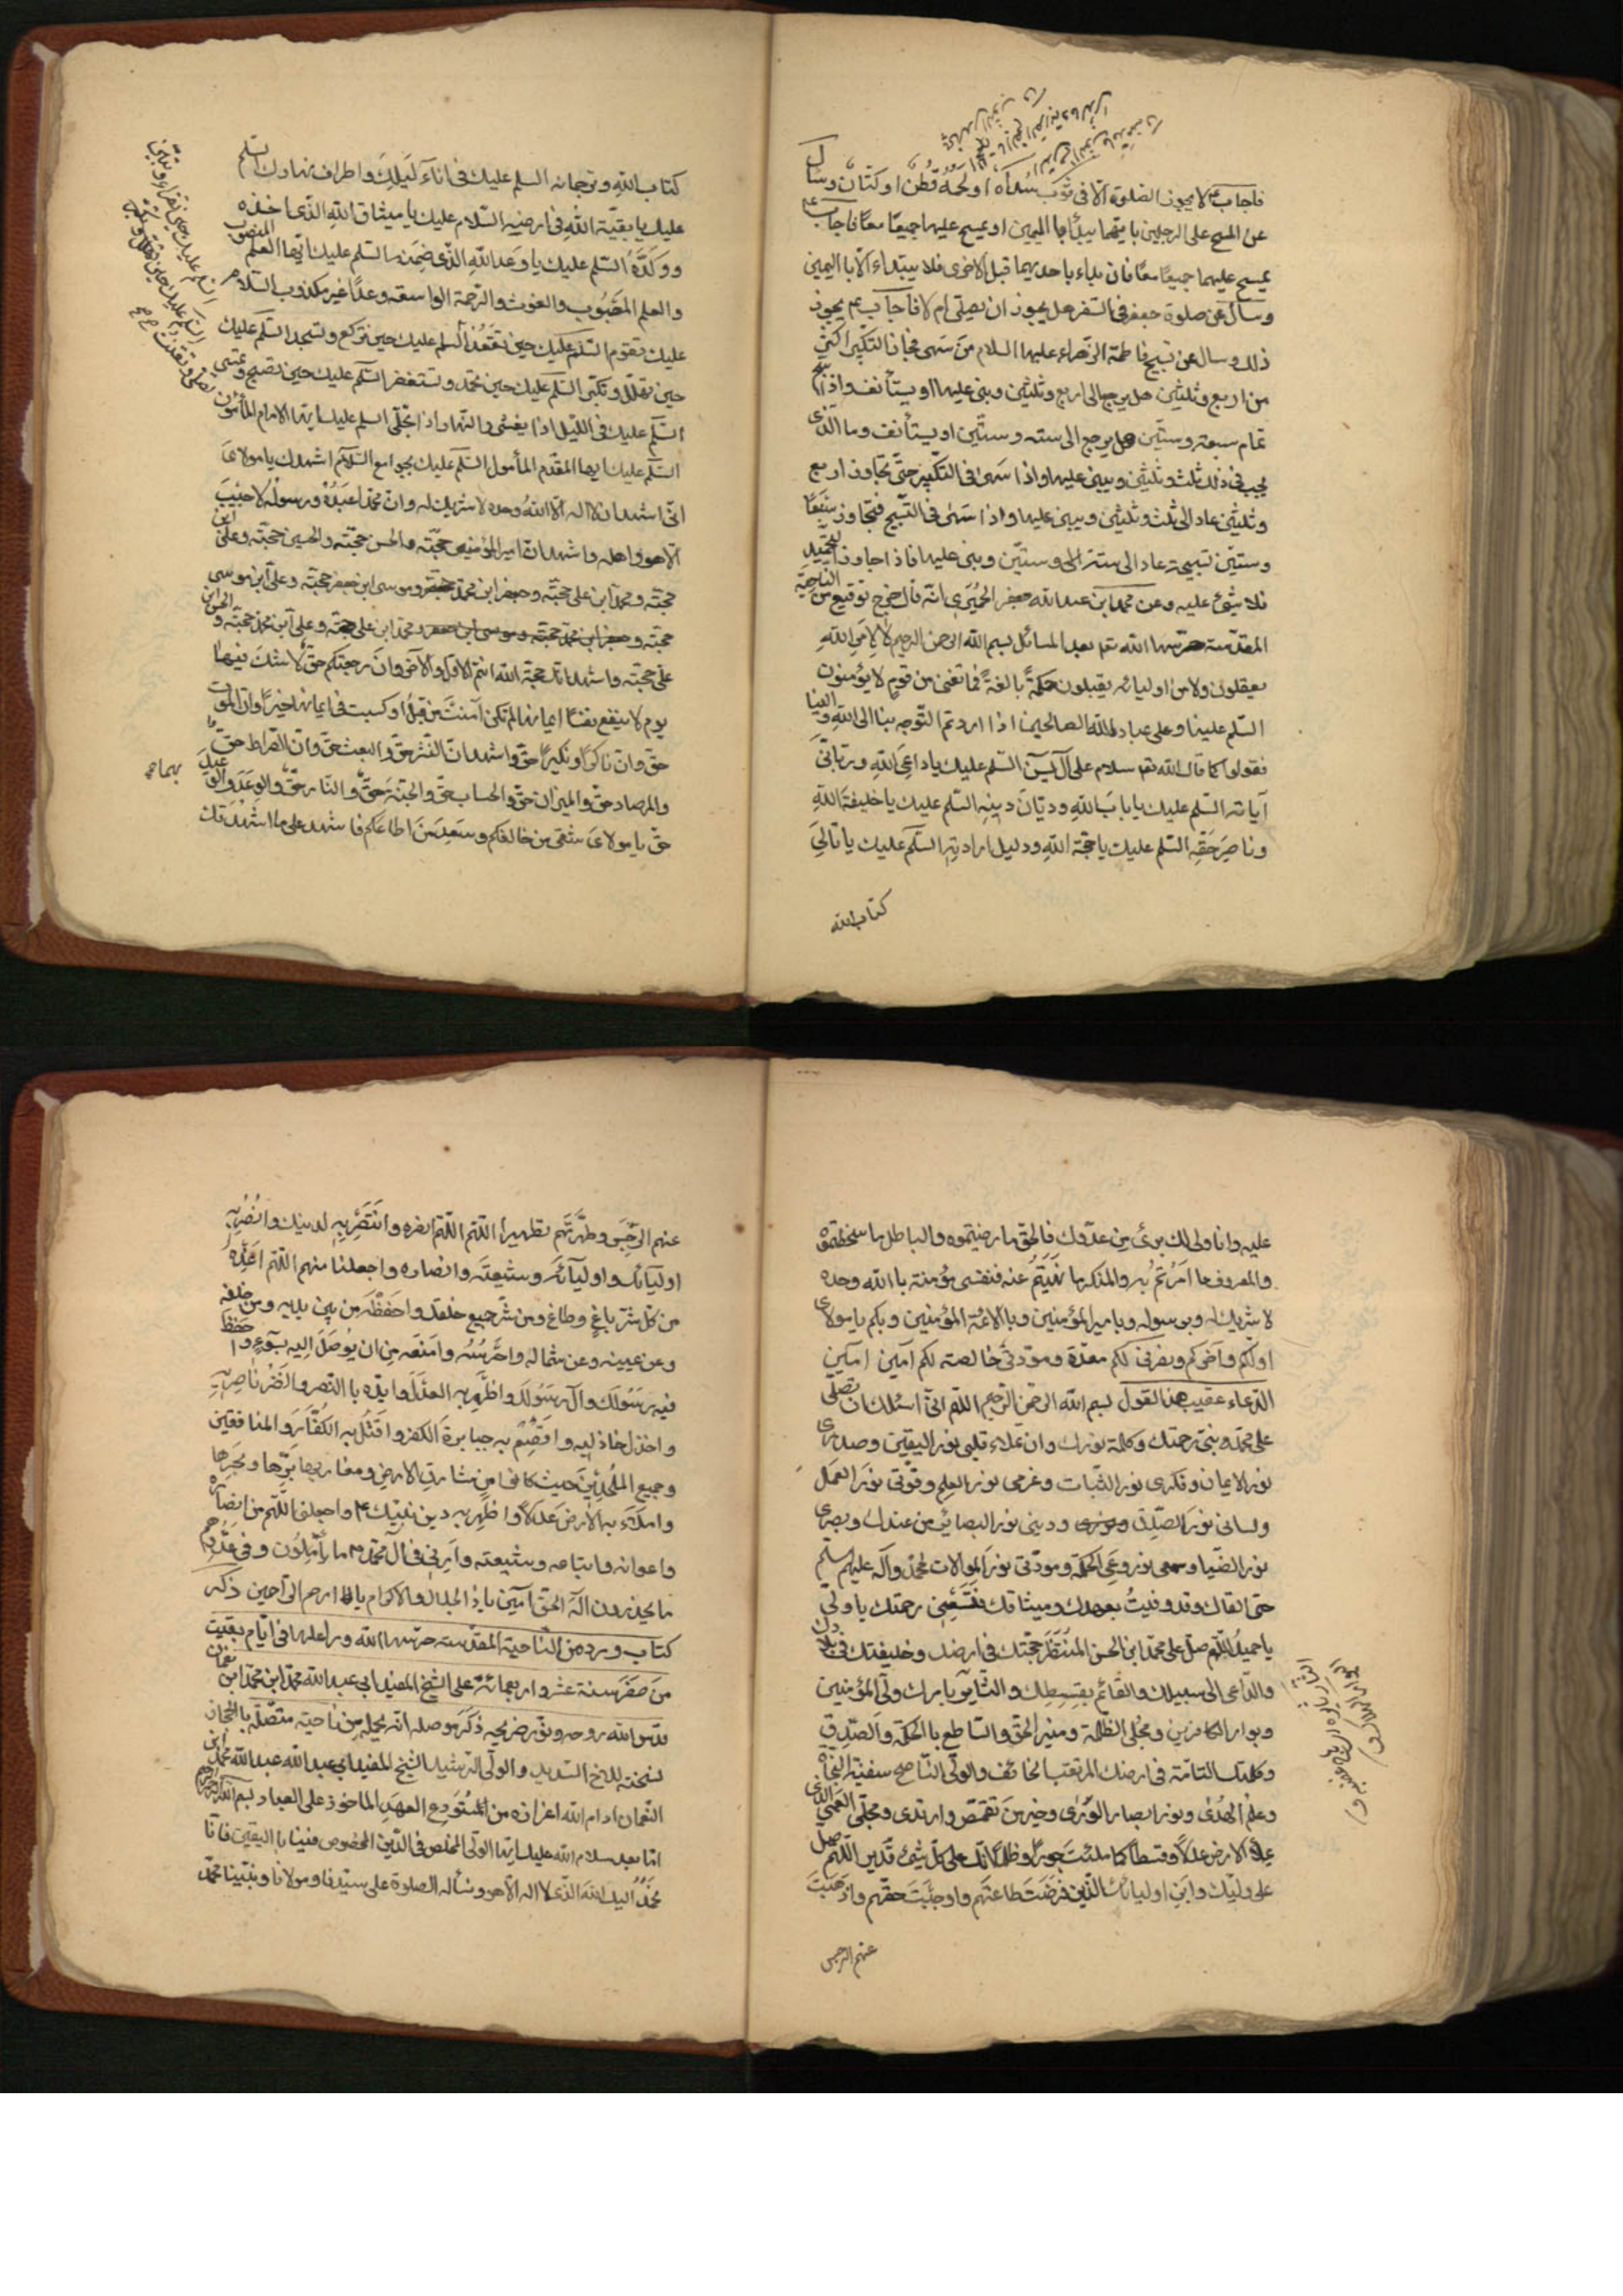 فاجاب ع لا يجوز الصلوة الا فى ثوب سداه او لحمة قطن او كتان وسأل
عن المسح على الرجلين بايتهما يبدأ باليمين او يمسح عليهما جميعا معا فاجاب ع
يمسح عليهما جميعا معا فان بداء باحديهما قبل الاخرى فلا يبتداء الا با اليمين
وسأل عن صلوة جعفر فى السفر هل يجوز ان يصلى ام لا فاجاب عم يجوز
ذلك وسال عن تسبيح فاطمة الزهراء عليها السلام من سهى فجاز التكبير اكثر
من اربع وثلثين هل يرجع الى اربع وثلثين وبنى عليها او يستأنف واذا سبح
تمام سبعه وستين هل يرجع الى سته وستين او يستأنف وما الذى
يجب فى ذلك ثلث وثلثين ويبنى عليها واذا سهى فى التكبير حتى تجاوز اربع
وثلثين عاد الى ثلث وثلثين ويبنى عليها واذا سهى فى التسبيح فتجاوز سبعا
وستين تسبيحة عاد الى ستة وستين وبنى عليها فاذا جاوز التحميد
فلا شئ عليه وعن محمد ابن عبد الله جعفر الحميرى انه قال خرج توقيع من الناحية
المقدسة حرسها الله تعم بعد المسائل بسم الله الرحمن الرحيم لا لامر الله
يعقلون ولا من اوليائه يقبلون حكمة بالغة فما تغنى من قوم لا يؤمنون
السلم علينا وعلى عباد الله الصالحين اذا اردتم التوجه بنا الى الله والينا
فقولوا كما قال الله تعم سلام على آل يس السلم عليك يا داعى الله وربانى
آياته السلم عليك يا باب الله وديان دينه السلم عليك يا خليفة الله
وناصر حقه السلم عليك يا حجة الله ودليل ارادته السلم عليك يا تالى
كتاب الله
كتاب الله وترجمانه السلم عليك فى اناء ليلك واطراف نهارك السلم
عليك يا بقية الله فى ارضه السلام عليك يا ميثاق الله الذى اخذه
ووكده السلم عليك يا وعد الله الذى ضمنه السلم عليك ايها العلم المنصوب
والعلم المصبوب والغوث والرحمة الواسعة وعدا غير مكذوب السلام
عليك تقوم السلم عليك حين تقعد السلم عليك حين تركع وتسجد السلم عليك
حين تهلل وتكبر السلم عليك حين تحمد وتستغفر السلم عليك حين تصبح وتمسى
السلم عليك فى الليل اذا يغشى والنهار اذا تجلى السلم عليك ايها الامام المأمون
السلم عليك ايها المقدم المأمول السلم عليك بجوامع السلام اشهدك يا مولاى
انى اشهد ان لا اله الا الله وحده لا شريك له وان محمدا عبده ورسوله لا حبيب
الا هو واهله واشهد ان امير المؤمنين حجته والحسن حجته والحسين حجته وعلى ابن
حجته ومحمد ابن على حجته وجعفر ابن محمد حجته وموسى ابن جعفر حجته وعلى ابن موسى
حجته وجعفر ابن محمد حجته وموسى ابن جعفر ومحمد ابن على حجته وعلى ابن محمد حجته والحسن ابن
على حجته واشهد انك حجة الله انتم الاول والآخر وان رجعتكم حق لا شك فيها
يوم لا ينفع نفسا ايمانها لم تكن آمنت من قبل او كسبت فى ايمانها خيرا وان الموت
حق وان ناكرا ونكيرا حق واشهد ان النشر حق والبعث حق وان الصراط حق
والمرصاد حق والميزان حق والحساب حق والجنة حق والنار حق والوعد والوعيد
حق يا مولاى شقى من خالفكم وسعد من اطاعكم فاشهد على ما اشهدتك
عليه وانا ولى لك برئ من عدوك فالحق ما رضيتموه والباطل ما سخطتموه
والمعروف ما امرتم به والمنكر ما نهيتم عنه فنفسى مؤمنة با الله وحده
لا شريك له وبرسوله وبامير المؤمنين وبا الائمة المؤمنين وبكم يا مولاى
اولكم واخركم ونصرتى لكم معدة ومودتى خالصته لكم آمين امين
الدعاء عقيب هذا القول بسم الله الرحمن الرحيم اللهم انى اسئلك ان تصلى
على محمد نبى رحمتك وكلمة نورك وان تملاء قلبى نور اليقين وصدرى
نور الايمان وفكرى نور الثبات وعزمى نور العلم وقوتى نور العمل
ولسانى نور الصدق ودينى نور البصائر من عندك وبصرى
نور الضيا وسمعى نور وعى الحكمة ومودتى نور الموالات لمحمد وآله عليهم السلم
حتى القاك وقد وفيت بعهدك وميثاقك فتسعنى رحمتك يا ولى
يا حميد اللهم صل على محمد ابن الحسن المنتظر حجتك فى ارضك وخليفتك فى بلادك
والداعى الى سبيلك والقائم بقسطك والثاير بامرك ولى المؤمنين
وبوار الكافرين ومجلى الظلمة ومنير الحق والساطع با الحكمة والصدق
وكلمتك التامة فى ارضك المرتقب الخائف والولى الناصح سفينة النجاة
وعلم الهدى ونور ابصار الورى وخير من تقمص وارتدى ومجلى العمى الذى
يملاء الارض عدلا وقسطا كما ملئت جورا وظلما انك على كل شئ قدير اللهم صل
على وليك وابن اوليائك الذين فرضت طاعتهم واوجبت حقهم واذهبت
عنهم الرجس
عنهم الرجس وطهرتهم تطهيرا اللهم اللهم انصره وانتصر به لدينك وانصر به
اوليائك واوليآئه وشيعته وانصاره واجعلنا منهم اللهم اعذه
من كل شر باغ وطاغ ومن شر جميع خلقك واحفظه من بين يديه ومن خلفه
وعن يمينه وعن شماله واحرسه وامنعه من ان يوصل اليه بسوء واحفظ
فيه رسولك وآل رسولك واظهر به العدل وايده با النصر وانصر ناصريه
واخذل خاذليه واقصم به جبابرة الكفر واقتل به الكفار والمنافقين
وجميع الملحدين حيث كانوا من مشارق الارض ومغاربها برها وبحرها
واملاء به الارض عدلا واظهر به دين نبيك واجعلنى اللهم من انصاره
واعوانه واتباعه وشيعته وارنى فى آل محمد ما يأملون وفى عدوهم
ما يحذرون اله الحق آمين يا ذا الجلال والاكرام يا ارحم الراحمين ذكر
كتاب ورد من الناحية المقدسة حرسها الله ورعاها فى ايام بقيت
من صفر سنة عشر واربعمائة على الشيخ المفيد ابى عبد الله محمد ابن محمد ابن نعمان
قدس الله روحه ونور ضريحه ذكر موصله انه يحمله من ناحية متصلة بالحجاز
نسخته للاخ السديد والولى الرشيد الشيخ المفيد ابى عبد الله عبد الله محمد ابن
النعمان ادام الله اعزازه من المستودع العهد الماخوذ على العباد بسم الله الرحمن الرحيم
اما بعد سلام الله عليك ايها الولى المخلص فى الدين المخصوص فينا با اليقين فانا
نحمد اليك الله الذى لا اله الا هو ونسأله الصلوة على سيدنا ومولانا ونبينا محمد